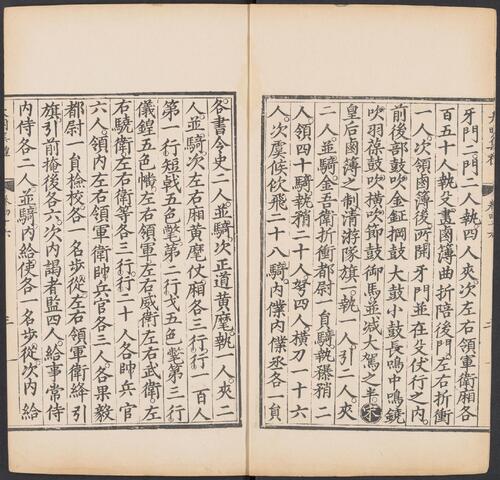 牙門二門二人執四人夾次左右領軍衛廂各
百五十人執殳畫鹵簿曲折陪後門左右折衝
一人次領鹵簿後所開牙門並在殳仗行之内
前後部鼓吹金鉦掆鼓大鼓小鼓長鳴中鳴鐃
吹羽葆鼓吹横吹節鼓御馬並減大駕之半宋
皇后鹵簿之制清游隊旗一執一人引二人夾
二人並騎金吾衛折衝都尉一員騎執矟二
人領四十騎執矟二十人弩四人横刀一十六
人次虞候佽飛二十八騎内僕内僕丞各一員
各書令史二人並騎次正道黄麾執一人夾二
人並騎次左右廂黄麾仗廂各三行行一百人
第一行短戟五色氅第二行戈五色氅第三行
儀鍠五色幟左右領軍左右威衛左右武衛左
右驍衛左右衛等各三行行二十人各帥兵官
六人領内左右領軍衛帥兵官各三人各果毅
都尉一員檢校各一名步從左右領軍衛絳引
旗引前掩後各六次内謁者監四人給事常侍
内侍各二人並騎内給使各一名步從次内給